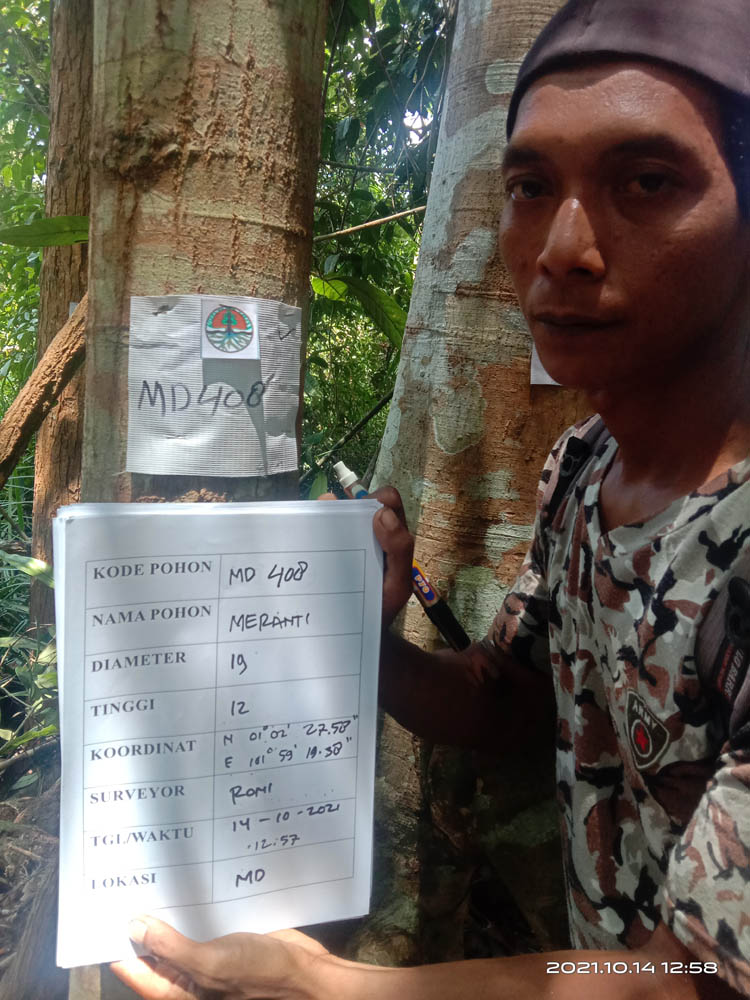 MD 408
KODE POHON MD 408
NAMA POHON MERANTI
DIAMETER 19
TINGGI 12
KOORDINAT N 01° 02' 27.58"
E 101° 59' 19.38"
SURVEYOR ROMI
TGL/WAKTU 14-10-2021
12:57
LOKASI MD
ARMY
2021.10.14 12:58